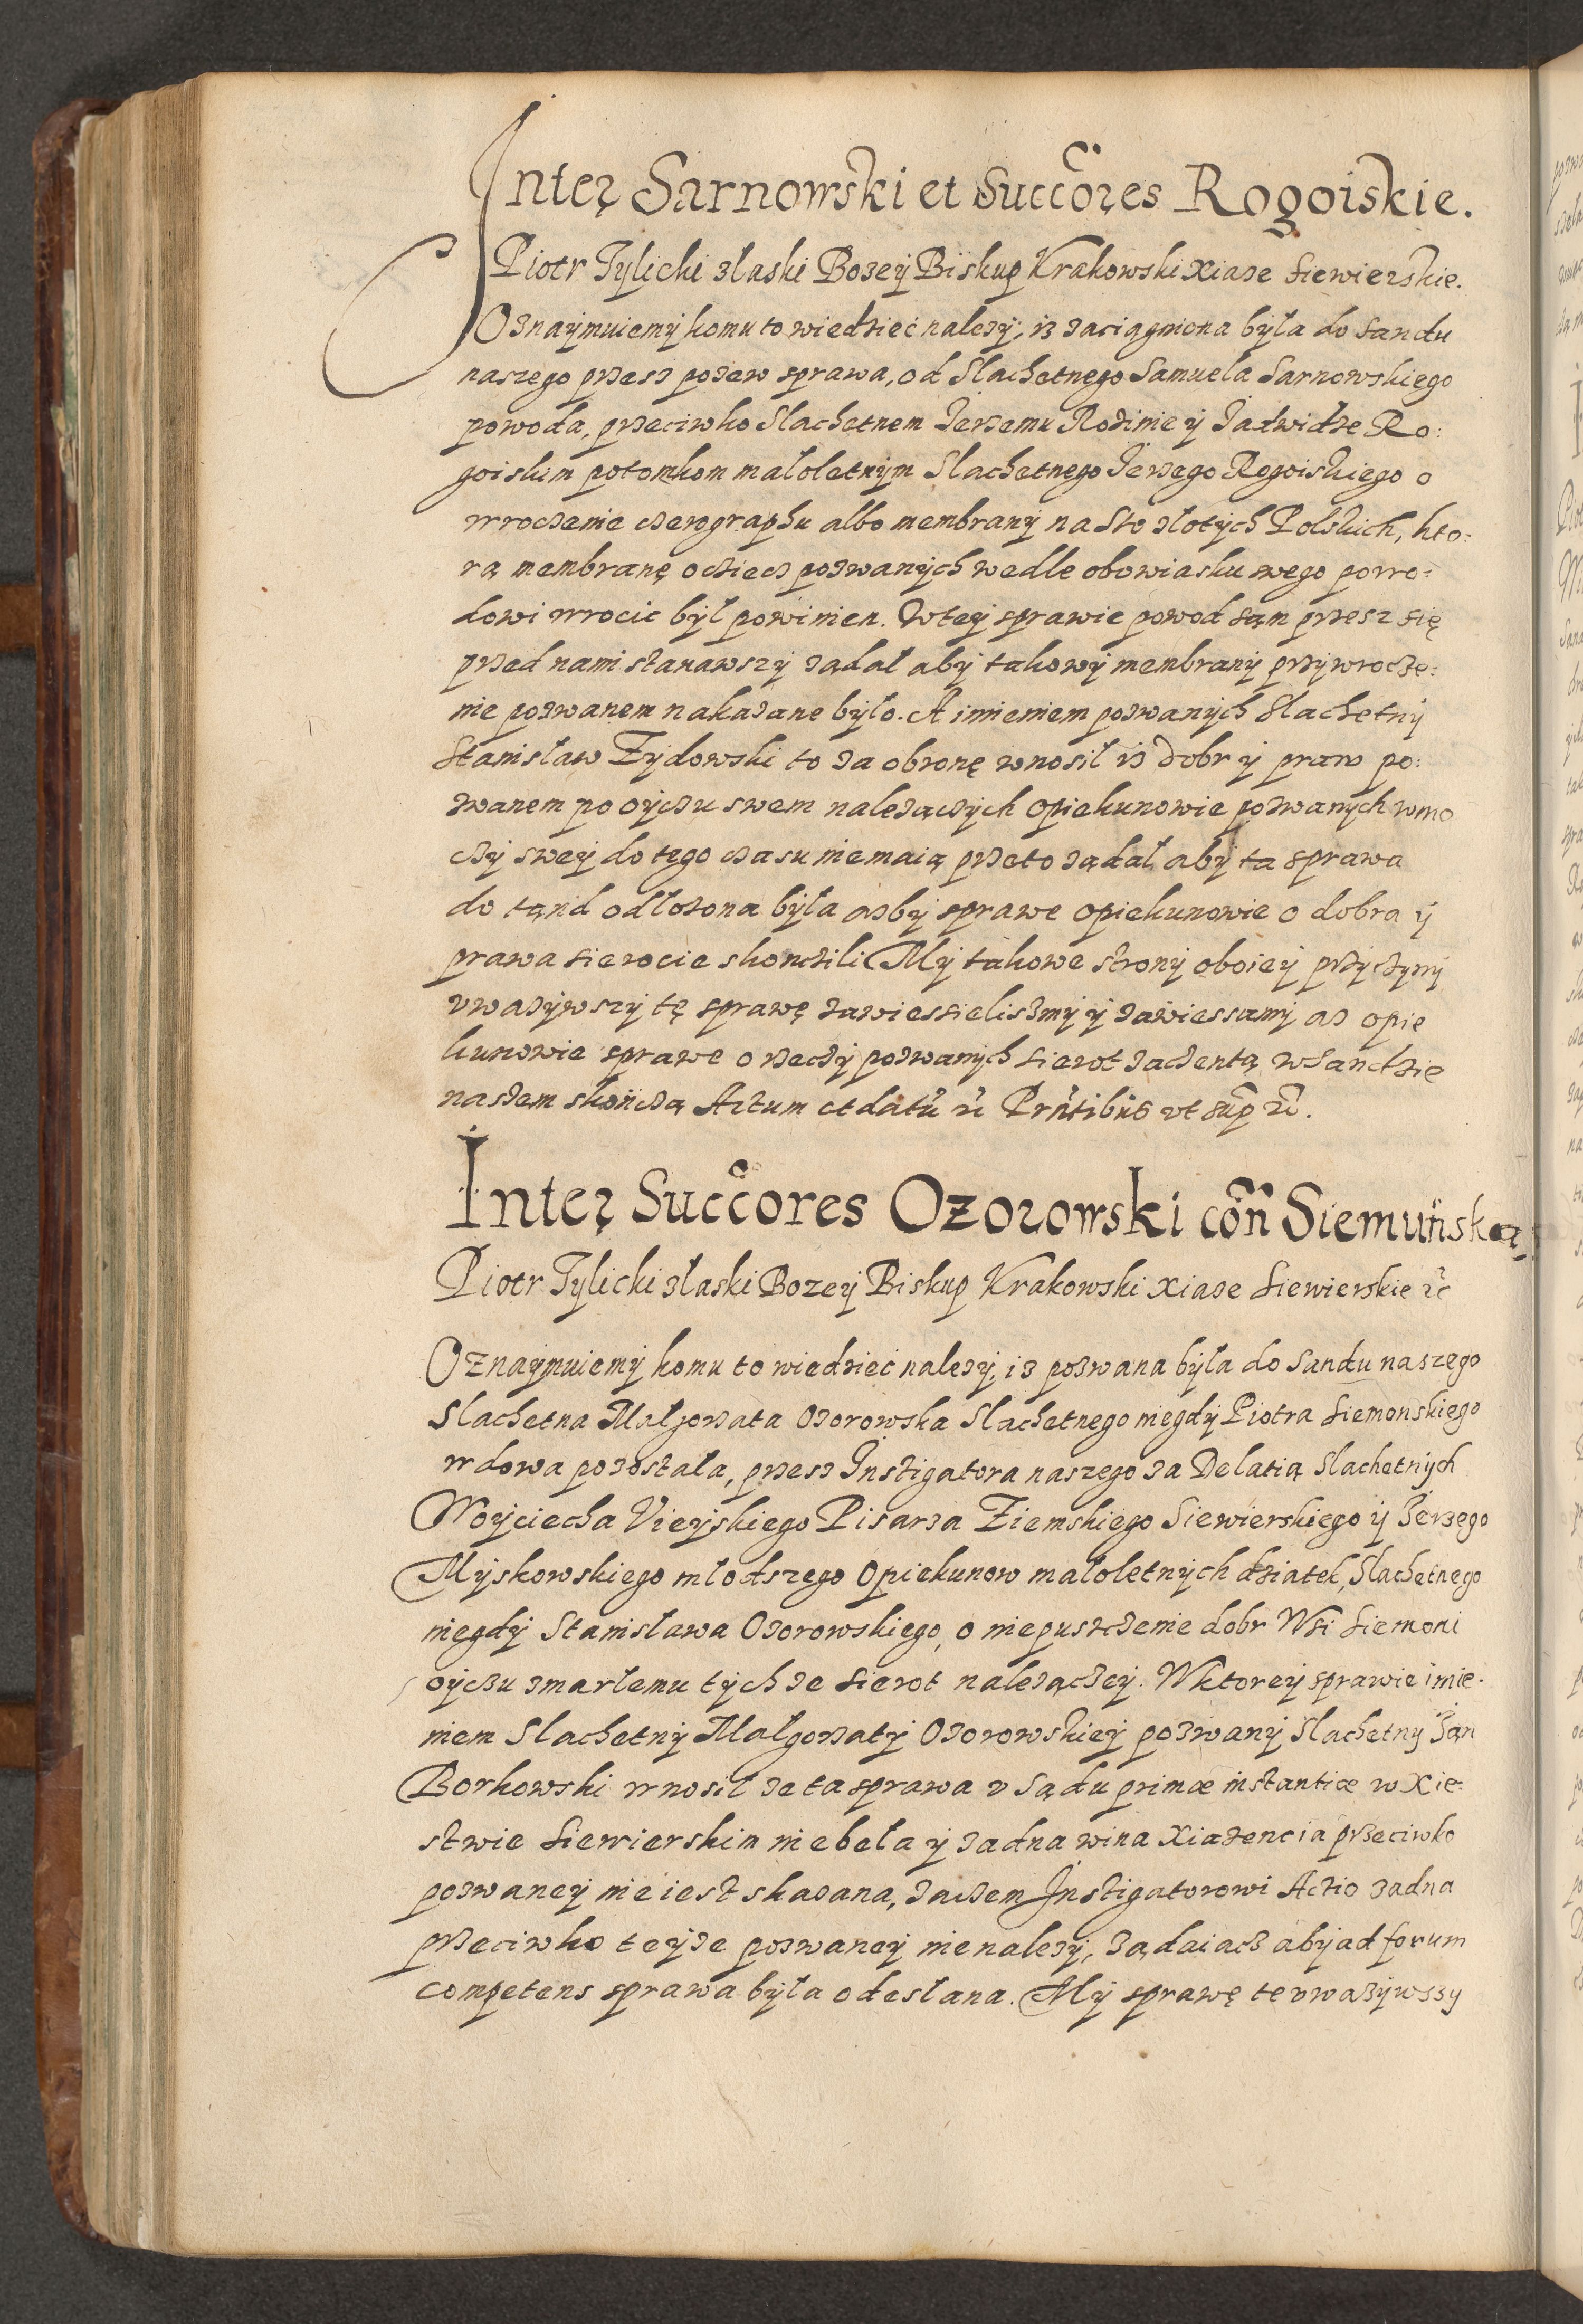 Inter Sarnowski et Succores Rogoiskie.
Piotr Tylicki z łaski Bozey Biskup Krakowski Xiaze Siewierskie.
Oznaymuiemy komu to wiedzieć nalezy, iz zaciągniona była do Sandu
naszego przez pozew sprawa, od Slachetnego Samuela Sarnowskiego
powoda, przeciwko Slachetnem Jerzemu Rozinie y Jadwidze Ro:
goiskim potomkom małoletnym Slachetnego Jerzego Rogoiskiego o
wroczenie czerographu albo membrany na Sto złotych Polskich, kto:
rą membranę oczieci pozwanych wedle obowiasku swego powo:
dowi wrocic był powinien. W tey sprawie powod sąm przesz się
przed nami stanawszy ządał aby takowy membrany przywrocze:
nie pozwanem nakazane było. A imieniem pozwanych Slachetny
Stanisław Zydowski to za obronę wnosil iz dobr y praw po:
zwanem po oyczu swem nalezączych opiekunowie pozwanych w mo
czy swey do tego czasu niemaią przeto ządał aby ta sprawa
do tąnd odłozona była azby sprawe opiekunowie o dobra y
prawa sierocie skonczili My takowe strony oboiey przyczyny
uwazywszy tę sprawę zawiessielismy y zawiessamy az opie
kunowie sprawe o rzeczy pozwanych sierot zaczentą w Sandzie
naszem skończą Actum et datũ rc̃ Prñtibus ut sup̃ rc̃.
Inter Succores Ozorowski coñ Siemuńska
Piotr Tylicki z łaski Bozey Biskup Krakowski Xiaze Siewierskie rc̃
Oznaymuiemy komu to wiedzieć nalezy, iz pozwana była do Sandu naszego
Slachetna Małgorzata Ozorowska Slachetnego niegdy Piotra Siemonskiego
wdowa pozostała, przez Instigatora naszego za Delatią Slachetnych
Woyciecha Vieyskiego Pisarza Ziemskiego Siewierskiego y Jerzego
Myskowskiego młodszego Opiekunow małoletnych dziatek, Slachetnego
niegdy Stanisława Ozorowskiego, o niepuszczenie dobr Wsi Siemoni
oyczu zmarłemu tych ze sierot nalezączey. W ktorey sprawie imie:
niem Slachetny Małgorzaty Ozorowskiey pozwany Slachetny Jan
Borkowski wnosil ze ta sprawa u Sądu primæ instantiæ w Xie:
stwie Siewierskim niebeła y zadna wina Xiazencia przeciwko
pozwaney nie iest skazana, zaczem Instigatorowi Actio zadna
przeciwko teyze pozwaney nienalezy, ządaiacz aby ad forum
competens sprawa była odesłana. My sprawę te uwazywszy